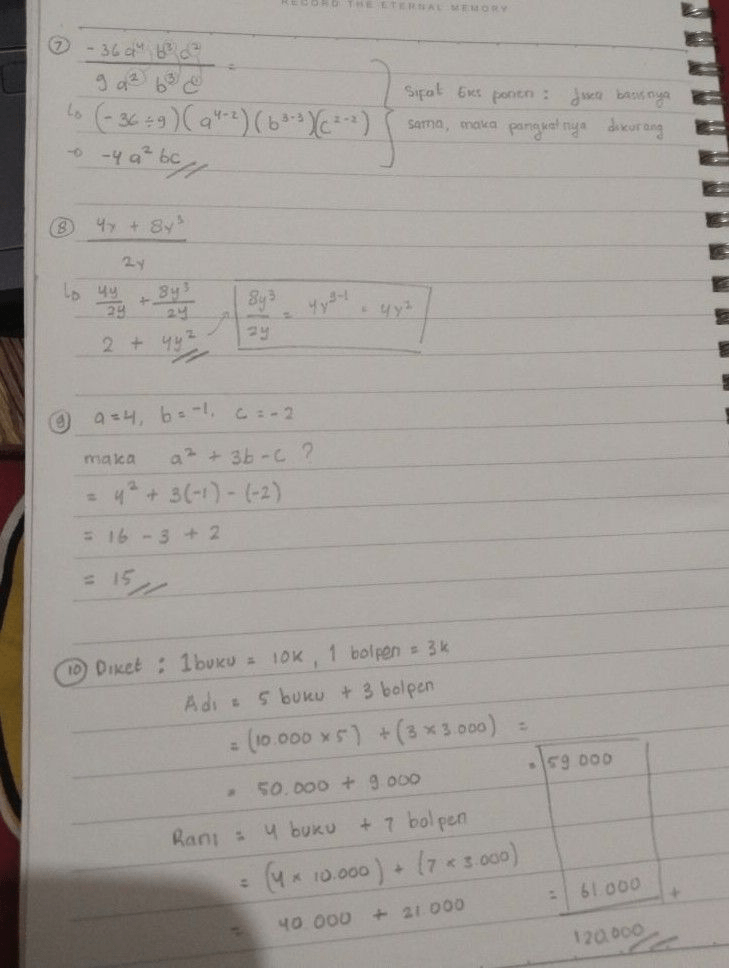 RECORD THE ETERNAL MEMORY
⑦ -36a⁴ b³ c² / 9 a² b³ c =
↳ (-36 ÷ 9) (a⁴⁻²) (b³⁻³) (c²⁻²)
→ -4 a² bc
Sipat Eksponen : Jika basisnya
sama, maka pangkatnya dikurang
⑧ 4y + 8y³ / 2y
↳ 4y/2y + 8y³/2y
2 + 4y²
8y³/2y = 4y³⁻¹ = 4y²
⑨ a=4, b=-1, c=-2
maka a² + 3b - c ?
= 4² + 3(-1) - (-2)
= 16 - 3 + 2
= 15
⑩ Diket : 1 buku = 10k, 1 bolpen = 3k
Adi = 5 buku + 3 bolpen
= (10.000 × 5) + (3 × 3.000) =
= 50.000 + 9.000 = 59.000
Rani = 4 buku + 7 bolpen
= (4 × 10.000) + (7 × 3.000)
= 40.000 + 21.000 = 61.000 +
120.000